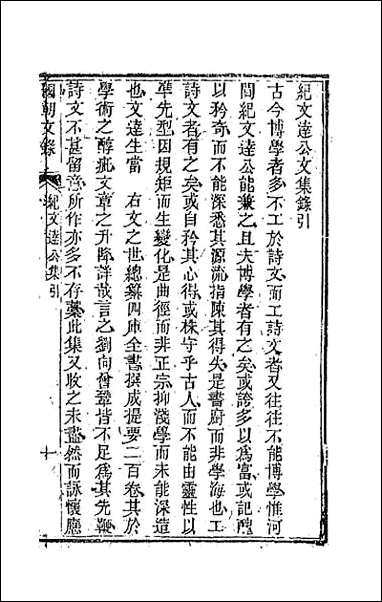 紀文達公文集錄引
古今博學者多不工於詩文而工詩文者又往往不能博學惟河
間紀文達公能兼之且夫博學者有之矣或誇多以為富或記醜
以矜奇而不能深悉其源流指陳其得失是書府而非學海也工
詩文者有之矣或自矜其心得或株守乎古人而不能由靈性以
準先型因規矩而生變化是曲徑而非正宗抑淺學而未能深造
也文達生當　右文之世總纂四庫全書撰成提要二百卷其於
學術之醇疵文章之升降詳哉言之劉向曾鞏皆不足為其先鞭
詩文不甚留意所作亦多不存藁此集又收之未盡然而詠懷應
國朝文錄　紀文達公集引　十